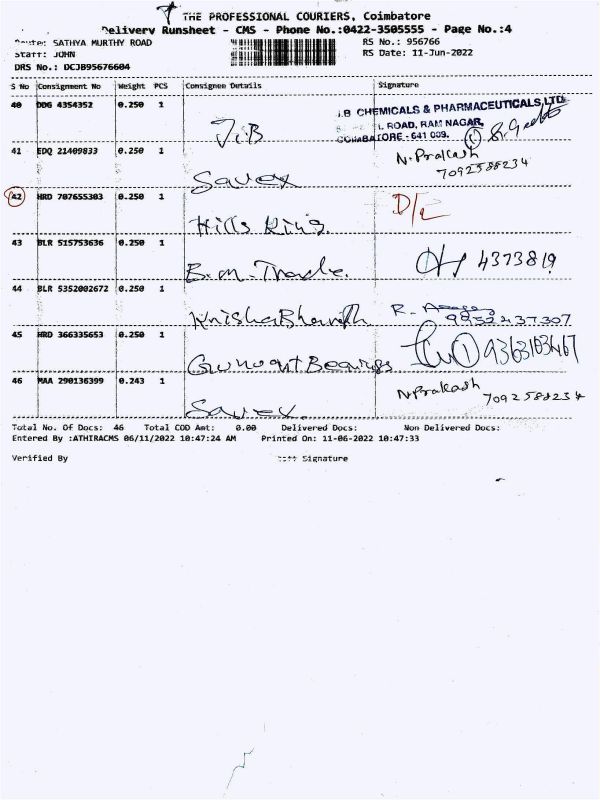 THE PROFESSIONAL COURIERS, Coimbatore
Delivery Runsheet - CMS - Phone No.:0422-3505555 - Page No.:4
Route: SATHYA MURTHY ROAD
RS No.: 956766
Staff: JOHN
RS Date: 11-Jun-2022
DRS No.: DCJB95676604
S No Consignment No Weight PCS Consignee Details Signature
40 DDG 4354352 0.250 1 J.B
J.B CHEMICALS & PHARMACEUTICALS,LTD
L ROAD, RAM NAGAR,
COIMBATORE - 641 009.
41 EDQ 21409833 0.250 1 Savex N.Prakash
7092588234
42 HRD 707655303 0.250 1 Hills King. D/L
43 BLR 515753636 0.250 1 B.M. Trade. 4373819
44 BLR 5352002672 0.250 1 R.
9952437307
45 HRD 366335653 0.250 1 Bearings
46 MAA 290136399 0.243 1 Savex. N.Prakash
7092588234
Total No. Of Docs: 46 Total COD Amt: 0.00 Delivered Docs: Non Delivered Docs:
Entered By :ATHIRACMS 06/11/2022 10:47:24 AM Printed On: 11-06-2022 10:47:33
Verified By Signature